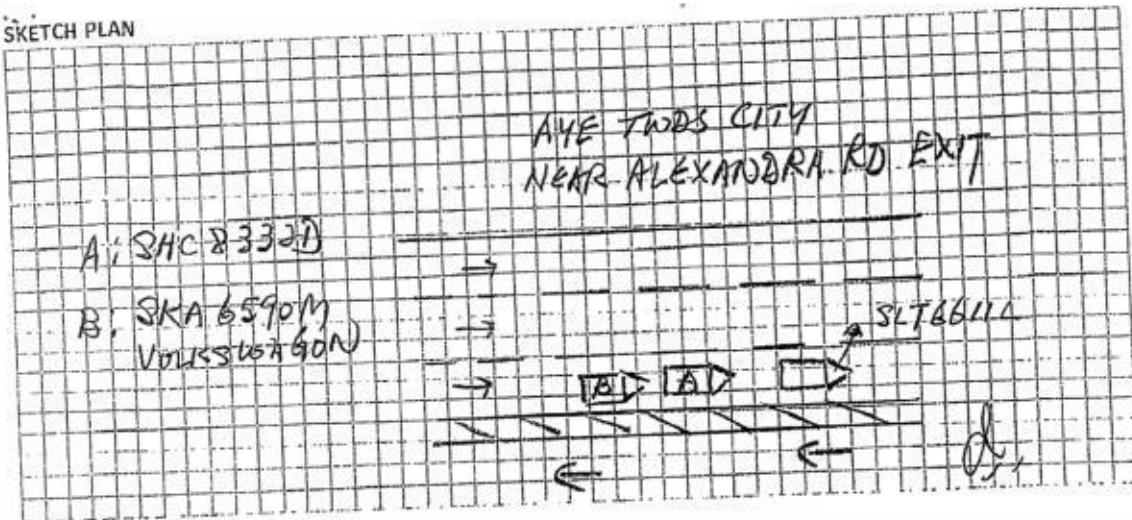 SKETCH PLAN
AYE TWDS CITY
NEAR ALEXANDRA RD EXIT
A: SHC 8332D
B: SKA 6590M
VOLKSWAGON
B
A